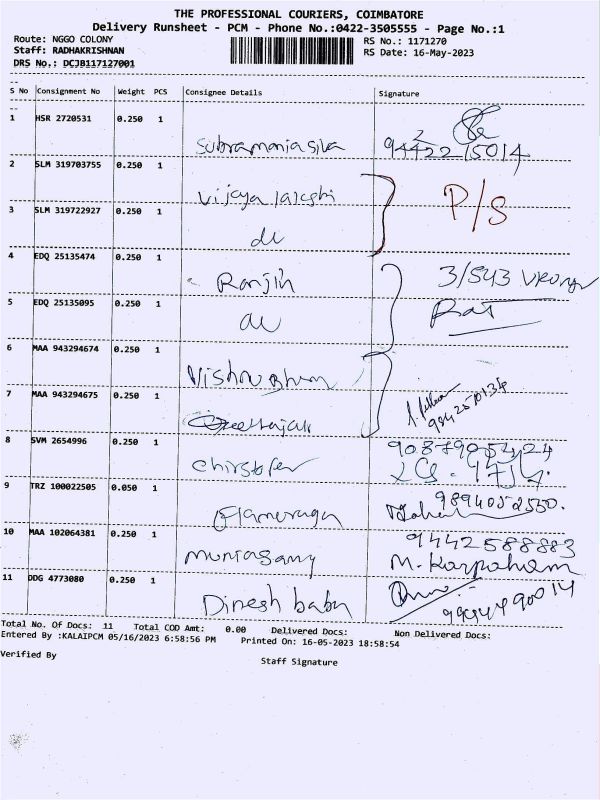 THE PROFESSIONAL COURIERS, COIMBATORE
Delivery Runsheet - PCM - Phone No.:0422-3505555 - Page No.:1
Route: NGGO COLONY
RS No.: 1171270
Staff: RADHAKRISHNAN
RS Date: 16-May-2023
DRS No.: DCJB117127001
S No Consignment No Weight PCS Consignee Details Signature
1 HSR 2720531 0.250 1
Subramaniasiva
2 SLM 319703755 0.250 1
Vijaya P/S
3 SLM 319722927 0.250 1
do
4 EDQ 25135474 0.250 1
Ranjih 3/543
5 EDQ 25135095 0.250 1
6 MAA 943294674 0.250 1
7 MAA 943294675 0.250 1
8 SVM 2654996 0.250 1
Chirstofer
9 TRZ 100022505 0.050 1
10 MAA 102064381 0.250 1
9442588883
M. Karpaham
11 DDG 4773080 0.250 1
Dinesh babu
Total No. Of Docs: 11 Total COD Amt: 0.00 Delivered Docs: Non Delivered Docs:
Entered By :KALAIPCM 05/16/2023 6:58:56 PM Printed On: 16-05-2023 18:58:54
Verified By
Staff Signature